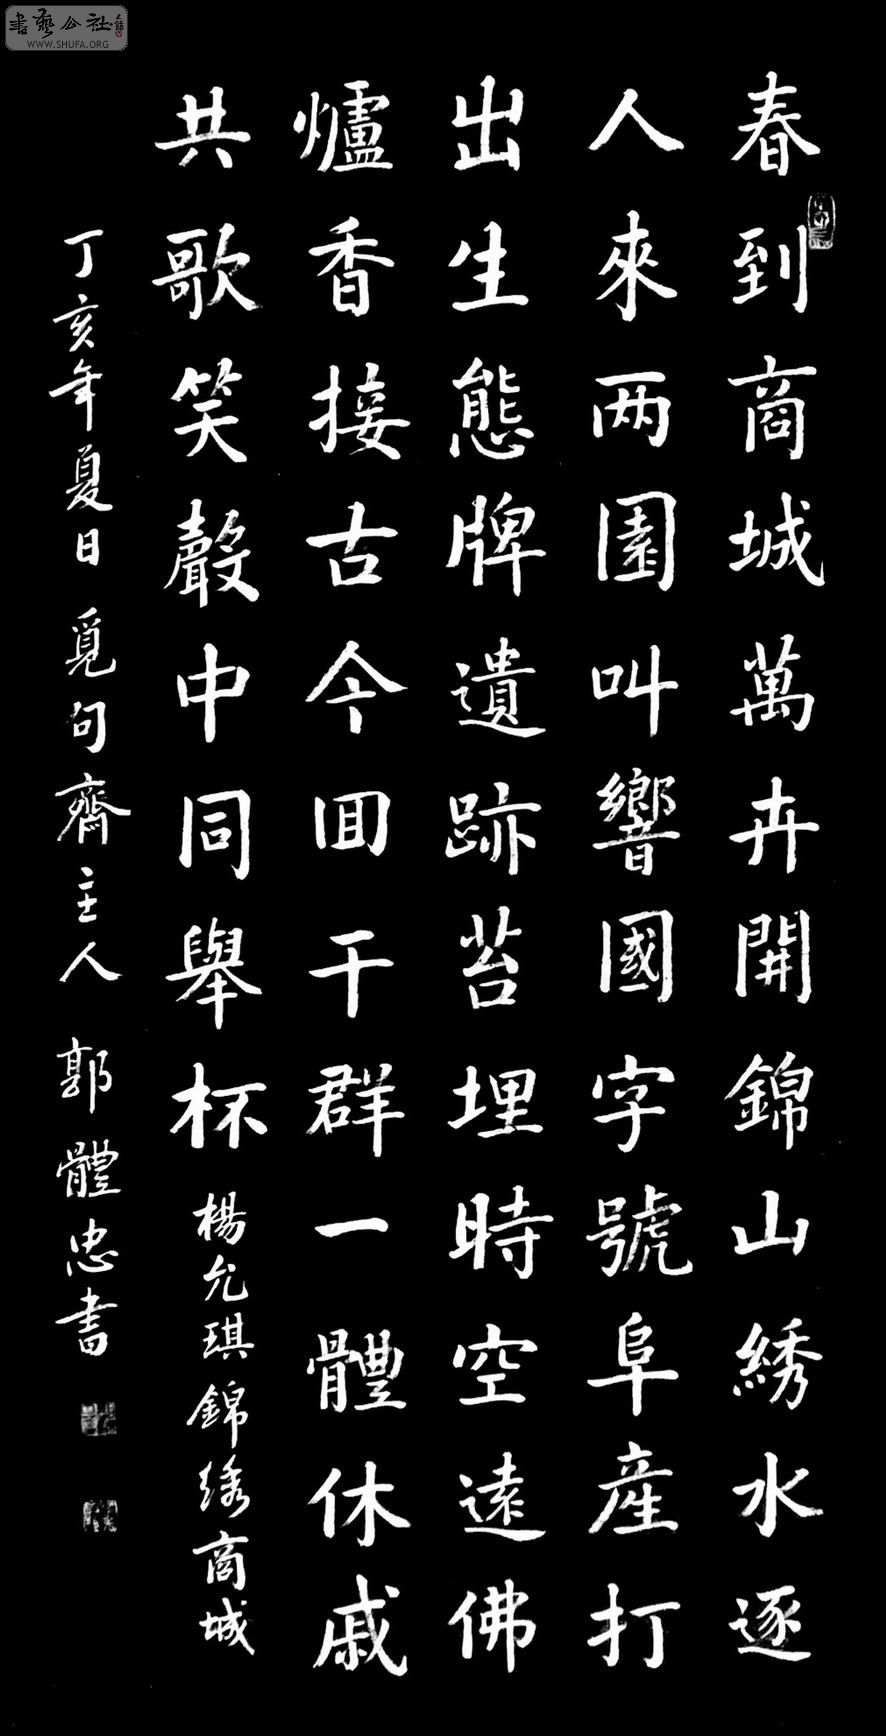 春到商城萬卉開錦山綉水逐
人來两園叫響國字號阜産打
出生態牌遺跡苔埋時空遠佛
爐香接古今囬干群一體休戚
共歌笑聲中同舉杯 楊允琪錦绣商城
丁亥年夏日 覓句齋主人 郭體忠書
書藝公社
WWW.SHUFA.ORG